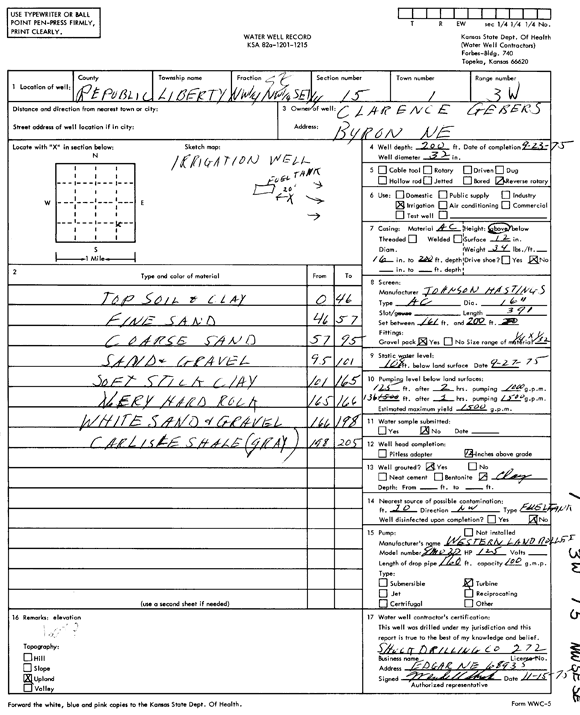 USE TYPEWRITER OR BALL
POINT PEN-PRESS FIRMLY,
PRINT CLEARLY.
WATER WELL RECORD
KSA 82a-1201-1215
T R EW sec 1/4 1/4 1/4 No.
Kansas State Dept. Of Health
(Water Well Contractors)
Forbes-Bldg. 740
Topeka, Kansas 66620
1 Location of well: County REPUBLIC Township name LIBERTY Fraction NW¼ SE NW¼ SE¼ Section number 15 Town number 1 Range number 3W
Distance and direction from nearest town or city:
Street address of well location if in city:
3 Owner of well: CLARENCE GEBERS
Address: BYRON NE
Locate with "X" in section below:
N
W E
S
1 Mile
X
Sketch map:
IRRIGATION WELL
FUEL TANK
20'
X
4 Well depth: 200 ft. Date of completion 9-23-75
Well diameter 32 in.
5 Cable tool Rotary Driven Dug
Hollow rod Jetted Bored X Reverse rotary
6 Use: Domestic Public supply Industry
X Irrigation Air conditioning Commercial
Test well
7 Casing: Material AC Height: above/below
Threaded Welded Surface 12 in.
Diam. Weight 34 lbs./ft.
16 in. to 200 ft. depth Drive shoe? Yes X No
in. to ft. depth
8 Screen:
Manufacturer JOHNSON HASTINGS
Type AC Dia. 16"
Slot/gauze Length 39'
Set between 161 ft. and 200 ft.
Fittings:
Gravel pack X Yes No Size range of material
9 Static water level:
108 ft. below land surface Date 9-27-75
10 Pumping level below land surfaces:
125 ft. after 2 hrs. pumping 1000 g.p.m.
136 ft. after 2 hrs. pumping 1500 g.p.m.
Estimated maximum yield 1500 g.p.m.
11 Water sample submitted:
Yes X No Date
12 Well head completion:
Pitless adapter 12 Inches above grade
13 Well grouted? X Yes No
Neat cement Bentonite X Clay
Depth: From ft. to ft.
14 Nearest source of possible contamination:
ft. 20 Direction NW Type FUEL TANK
Well disinfected upon completion? Yes X No
15 Pump: Not installed
Manufacturer's name WESTERN LAND ROLLER
Model number HP 125 Volts
Length of drop pipe 160 ft. capacity g.m.p.
Type:
Submersible X Turbine
Jet Reciprocating
Certrifugal Other
2 Type and color of material From To
TOP SOIL & CLAY 0 46
FINE SAND 46 57
COARSE SAND 57 95
SAND & GRAVEL 95 101
SOFT STICK CLAY 101 165
VERY HARD ROCK 165 166
WHITE SAND & GRAVEL 166 198
CARLISLE SHALE (GRAY) 198 205
(use a second sheet if needed)
16 Remarks: elevation
Topography:
Hill
Slope
X Upland
Valley
17 Water well contractor's certification:
This well was drilled under my jurisdiction and this
report is true to the best of my knowledge and belief.
DRILLING CO 272
Business name License No.
Address EDGAR NE 68935
Signed Date 11-15-75
Authorized representative
Forward the white, blue and pink copies to the Kansas State Dept. Of Health.
Form WWC-5
1 3W 15 NW SE SE